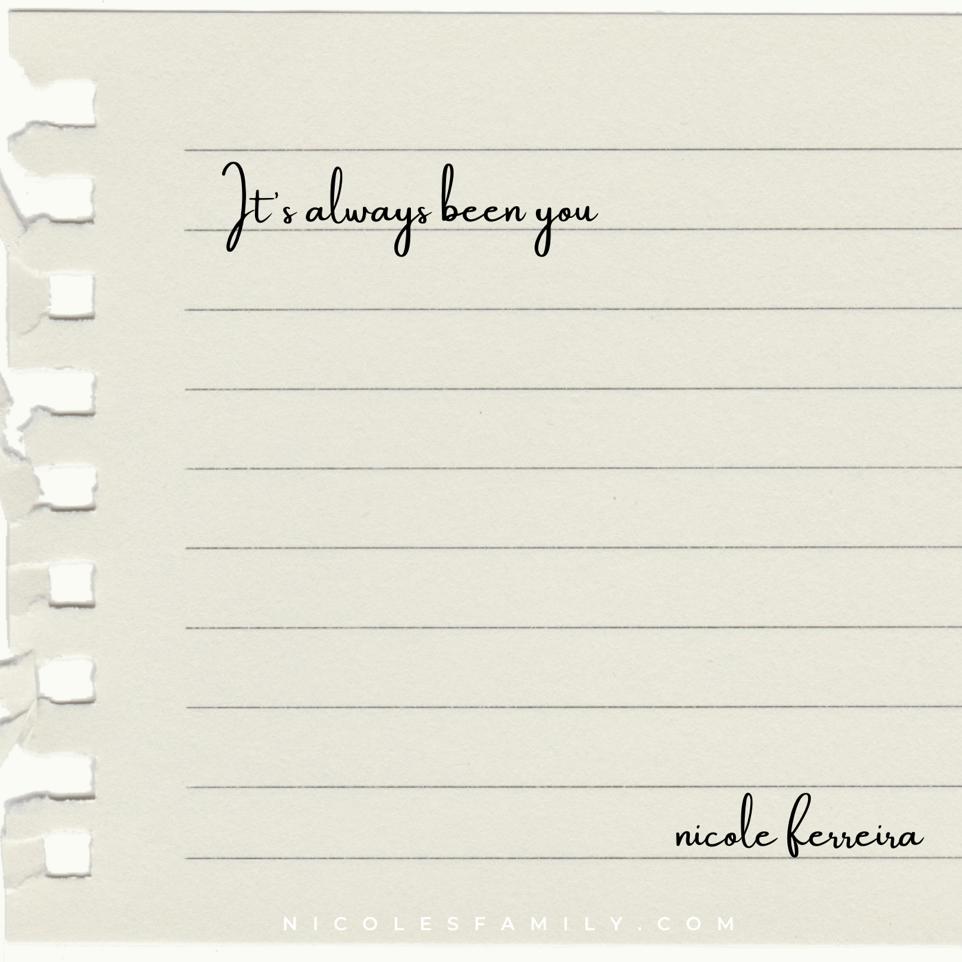 It's always been you
nicole ferreira
NICOLESFAMILY.COM